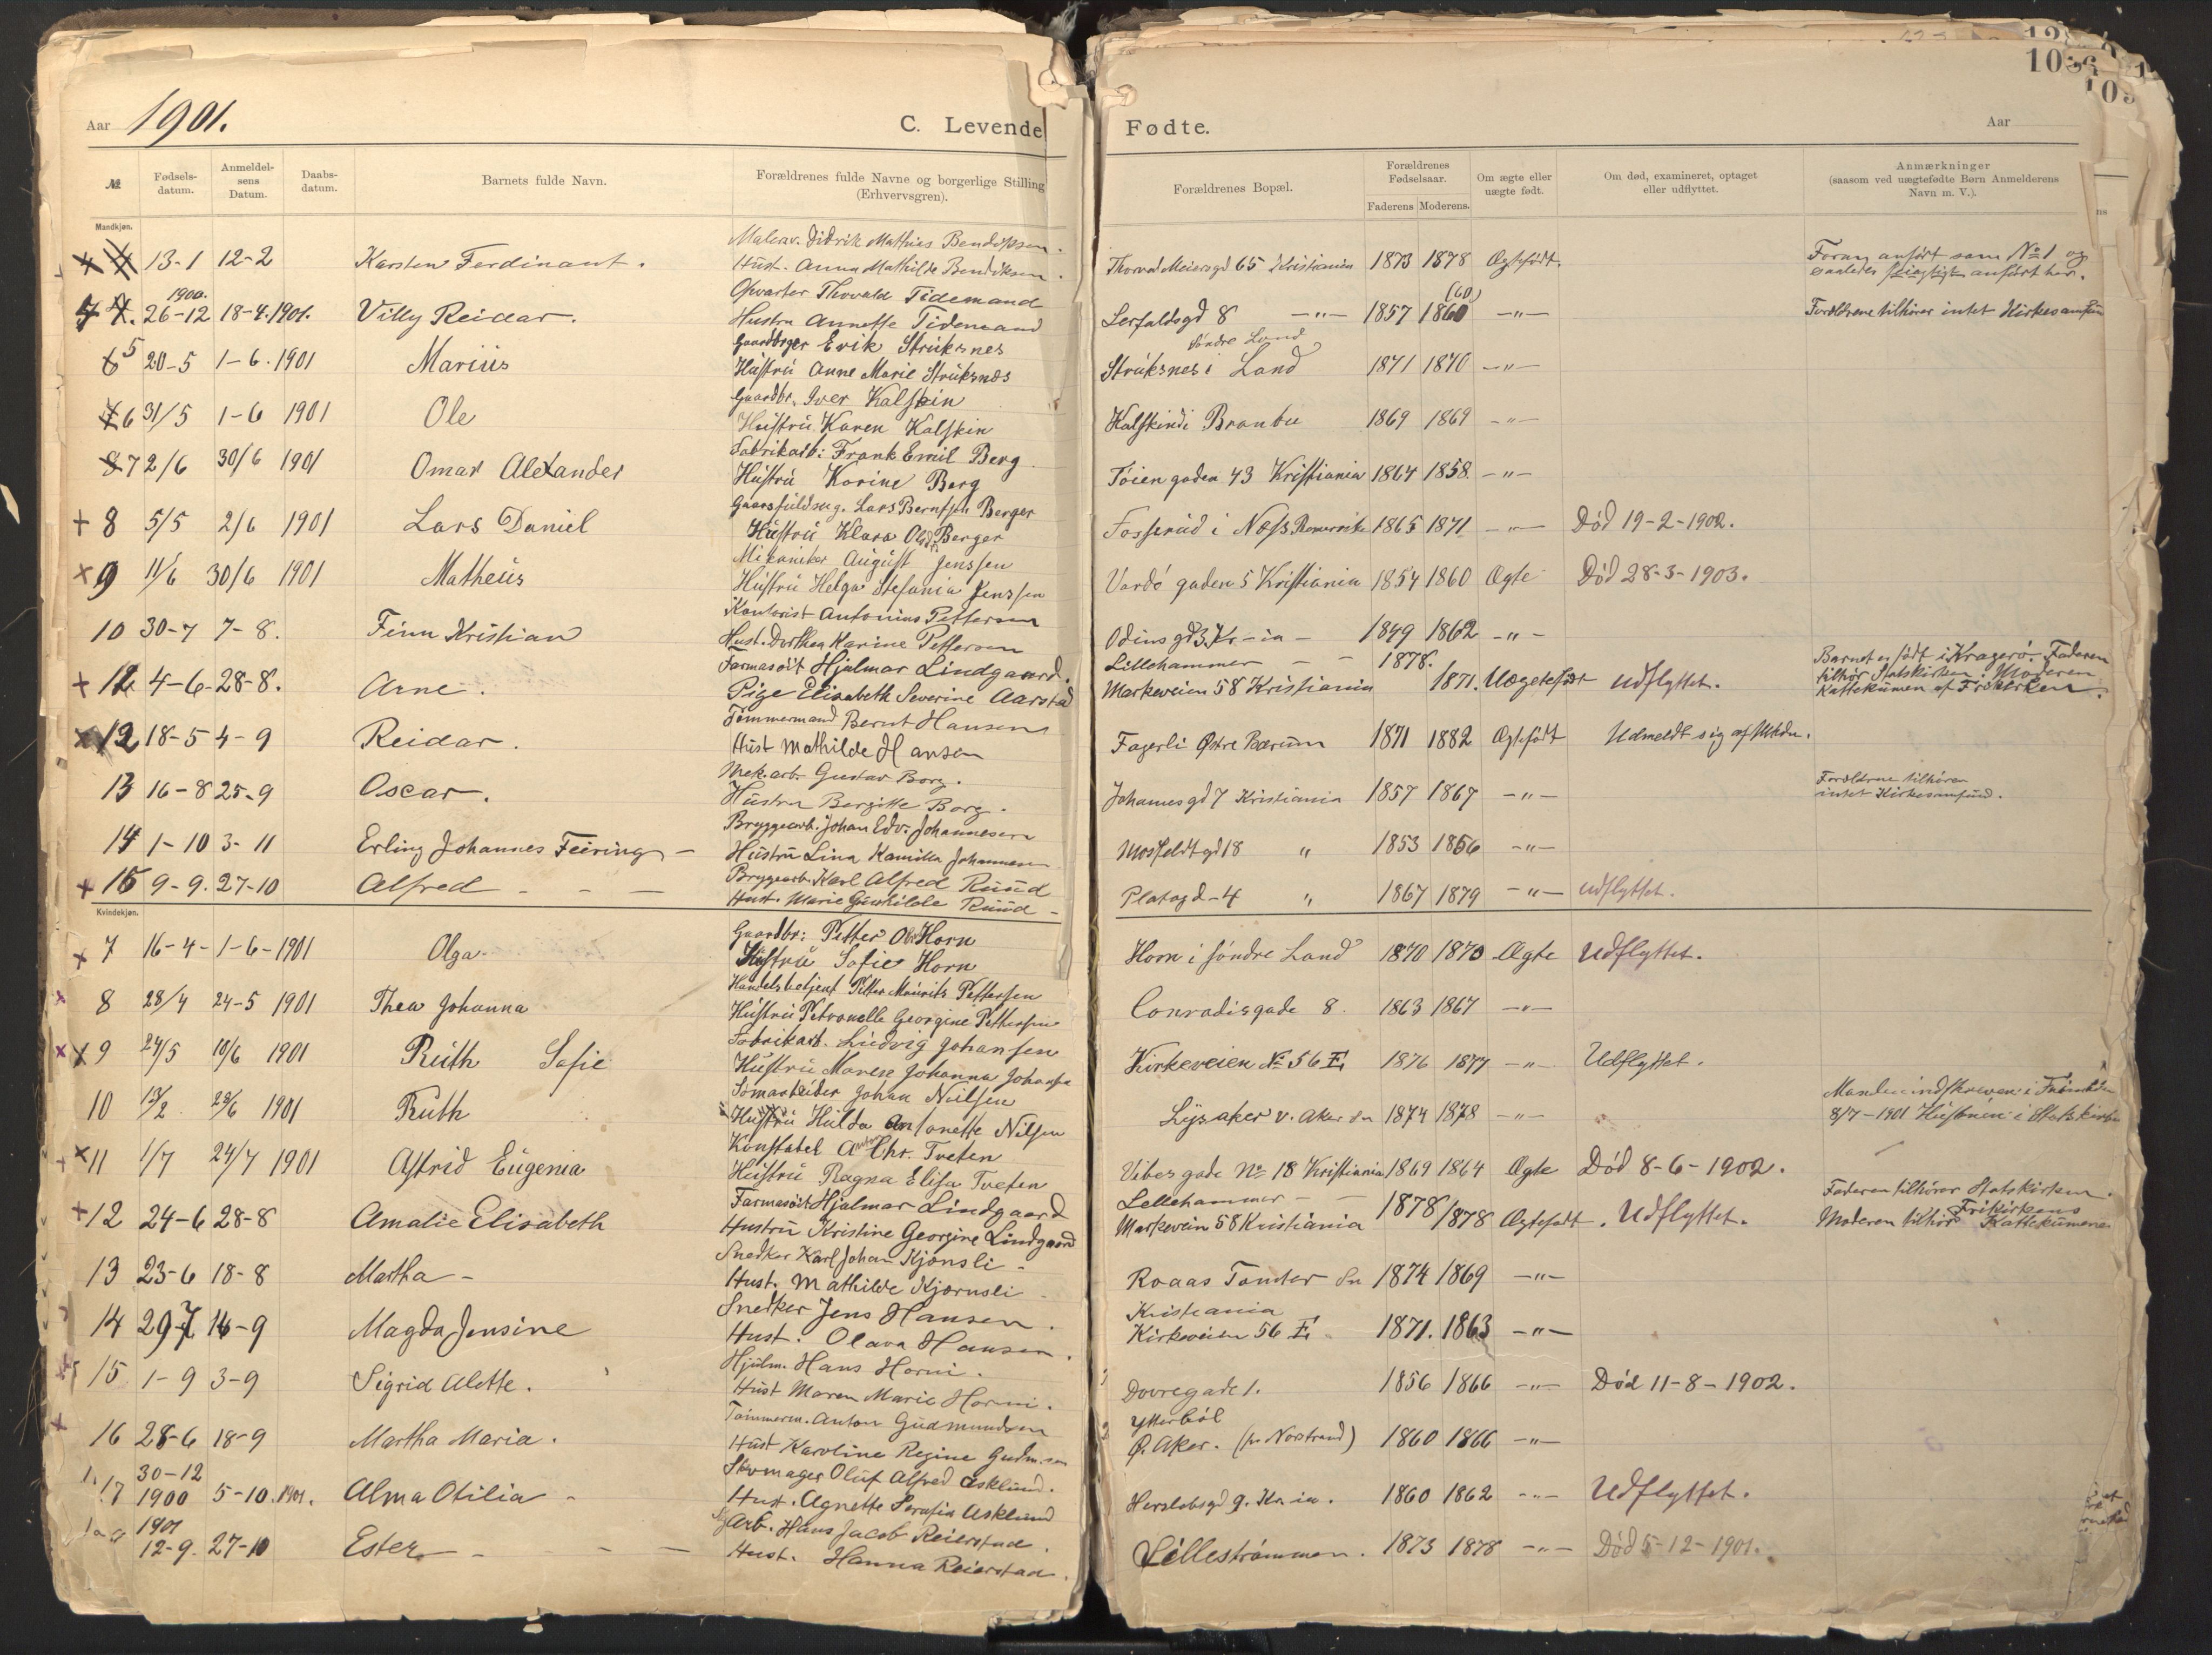 Aar 1901. C. Levende Fødte. Aar
103
№ Fødselsdatum. Anmeldelsens Datum. Daabsdatum. Barnets fulde Navn. Forældrenes fulde Navne og borgerlige Stilling (Erhvervsgren). Forældrenes Bopæl. Forældrenes Fødselsaar. Faderens Moderens. Om ægte eller uægte født. Om død, examineret, optaget eller udflyttet. Anmærkninger (saasom ved uægtefødte Børn Anmelderens Navn m. V.).
Mandkjøn.
13-1 12-2 Karsten Ferdinant. Didrik Mathias Bendiksen. Hust. Anna Mathilde Bendiksen. Thorvald Meiersgd 65 Kristiania 1873 1878 Ægtefødt. Foran anført som № 1 og saaledes anført her.
4. 1900. 26-12 18-4.1901. Villy Reidar. Thorvald Tidemand Hustru Annette Tidemand Lerfaldsgd 8 -"- 1857 1860 (60) -"- Forældrene tilhører intet Kirkesamfun
5 20-5 1-6.1901 Marius Gaardbrger Erik Struksnes Hustru Anne Marie Struksnæs Struksnes i Søndre Land 1871 1870 -"-
6 31/5 1-6 1901 Ole Gaardbr. Iver Kalskin Hustru Karen Kalskin Kalskin i Branbu 1869 1869 -"-
7 2/6 30/6 1901 Omar Alexander Fabrikarb: Frank Emil Berg Hustru Karine Berg Tøiengaden 43 Kristiania 1864 1858. -"-
+ 8 5/5 2/6 1901 Lars Daniel Lars Berntsen Berger Hustru Klara Olsd. Berger Fosserud i Næss Romerrike 1865 1871 -"- Død 19-2-1902.
x 9 11/6 30/6 1901 Matheus Mekaniker August Jenssen Hustru Helga Stefania Jenssen Vardøgaden 5 Kristiania 1854 1860 Ægte Død 28-3-1903.
10 30-7 7-8. Finn Kristian Kontorist Antonius Pettersen Hust. Dorthea Karine Pettersen Odinsgd 3, Kr-ia - 1849 1862 -"-
+ 11 4-6- 28-8. Arne. Farmasøit Hjalmar Lindgaard. Pige Elisabeth Severine Aarstad Lillehammer - - Markeveien 58 Kristiania 1878. 1871. Uægtefødt Udflyttet. Barnet er født i Kragerø. Faderen tilhør Statskirken. Moderen Kattekumen af Frikirken.
x 12 18-5 4-9 Reidar. Tømmermand Bernt Hansen Hust Mathilde Hansen Fagerli Østre Bærum 1871 1882 Ægtefødt Udmeldt sig af Mhdn.
13 16-8 25-9 Oscar. Mek.arb. Gustav Borg. Hustru Bergitte Borg. Johannesgd 7 Kristiania 1857 1867 -"- Forældrene tilhører intet Kirkesamfund.
14 1-10 3-11 Erling Johannes Feiring - Bryggearb. Johan Edv. Johannesen Hustru Lina Kamilla Johannesen Mosfeldtgd 18 " 1853 1856 -"-
+ 15 9-9. 27-10 Alfred - - - Bryggearb. Karl Alfred Ruud Hust. Marie Gunhilde Ruud - Platougd-4 " 1867 1879 -"- Udflyttet.
Kvindekjøn.
x 7 16-4- 1-6-1901 Olga Gaardbr: Petter Horn Hustru Sofie Horn Horn i søndre Land 1870 1870 Ægte Udflyttet.
x 8 28/4 24-5 1901 Thea Johanna Handelsbetjent Petter Mauritz Pettersen Hustru Petronelle Georgine Pettersen Conradisgade 8. 1863 1867 -"-
x 9 24/5 10/6 1901 Ruth Sofie Fabrikarb. Ludvig Johansen Hustru Johanna Johansen Kirkeveien № 56 E 1876 1877 -"- Udflyttet.
10 1901 Ruth Johan Nielsen Hustru Hulda Antonette Nilsen Lysaker v. Aker 1874 1878 -"- 8/7-1901 Hustruen i Statskirken
x 11 1/7 24/7 1901 Astrid Eugenia Konstabel Anton Chr. Tveten Hustru Ragna Elisa Tveten Vibesgade № 18 Kristiania 1869 1864 Ægte Død 8-6-1902.
+ 12 24-6 28-8 Amalie Elisabeth Farmasøit Hjalmar Lindgaard Hustru Kristine Georgine Lindgaard Lellehammer - - Markevein 58 Kristiania 1878 1878 Ægtefødt. Udflyttet. Faderen tilhører Statskirken. Moderen tilhør Frikirkens Kattekumene
13 23-6 18-8 Martha - Snedker Karl Johan Kjønsli - Hust. Mathilde Kjørnsli Roaas Tomter 1874 1869 -"-
14 29-7 14-9 Magda Jensine Snedker Jens Hansen. Hust. Olava Hansen. Kristiania Kirkeveien 56 E 1871. 1863 -"-
15 1-9 3-9 Sigrid Alette. Hjulm. Hans Horni. Hust Maren Marie Horni. Dovregade 1. 1856 1866 -"- Død 11-8-1902.
x 16 28-6 18-9 Martha Maria. Tømmerm. Anton Gudmundsen Hust Karoline Regine Gudm.sen Ytterbøl Ø. Aker. (pr Norstrand) 1860 1866 -"-
17 30-12 1900 5-10.1901. Alma Otilia - Skomager Oluf Alfred Asklund. Hust. Agnette Serafia Asklund Herslebsgd 9. Kr.ia. 1860 1862 -"- Udflyttet.
1901 12-9. 27-10 Ester - - - Arb. Hans Jacob Reierstad. Hust. Hanna Reierstad. Lillestrømmen. 1873 1878 -"- Død 5-12-1901.